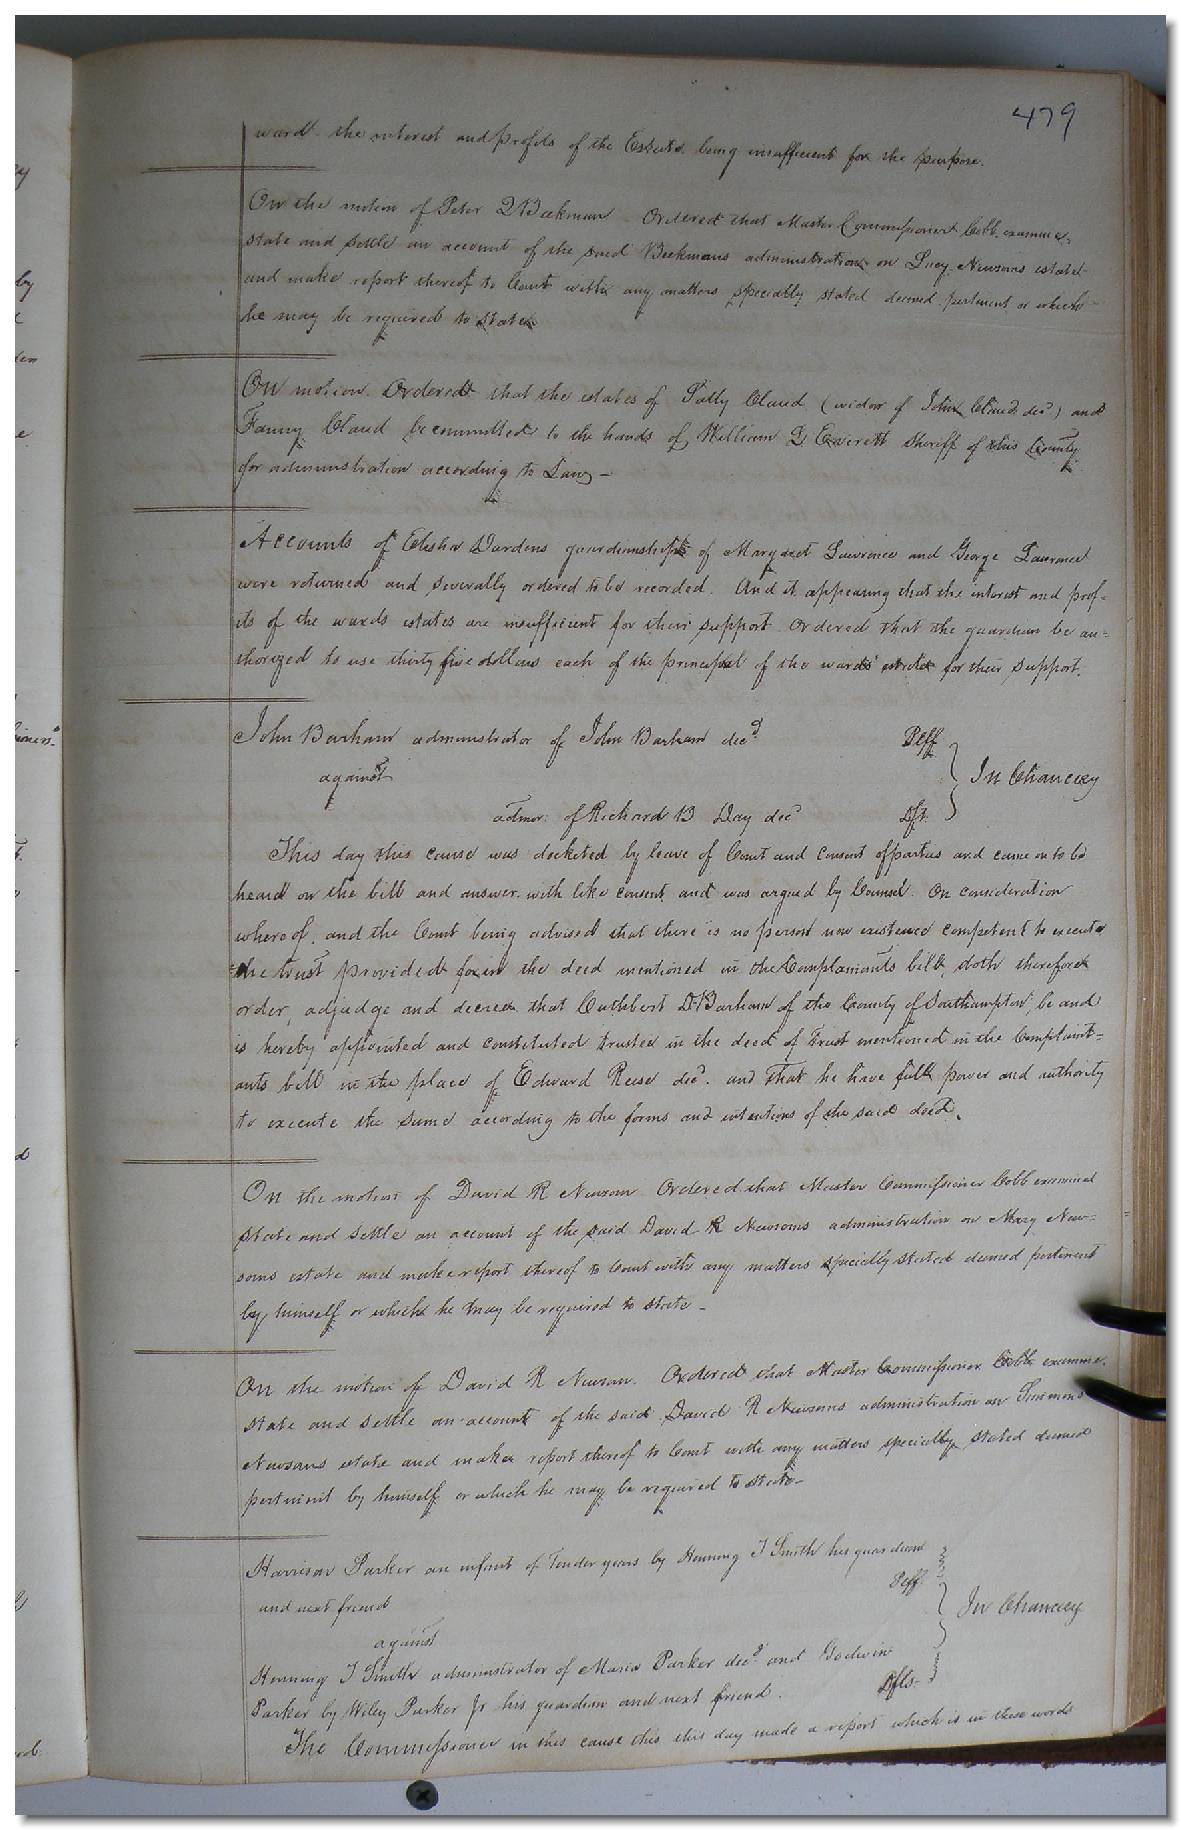 479
ward the interest and profits of the Estate being insufficient for the purpose.
On the motion of Peter Beekman Ordered that Master Commissioner Cobb examine,
state and settle an account of the said Beekmans administration on Lucy Newsoms estate
and make report thereof to Court with any matters specially stated deemed pertinent or which
he may be required to state
On motion Ordered that the estates of Sally Claud (widow of John Claud decd) and
Fanny Claud be committed to the hands of William Everett Sheriff of this County
for administration according to Law –
Accounts of Elisha Dardens guardianship of Margaret Lawrence and George Laurence
were returned and severally ordered to be recorded. And it appearing that the interest and prof=
its of the wards estates are insufficient for their support Ordered that the guardian be au=
thorized to use thirty five dollars each of the principal of the wards' estate for their support.
John Barham administrator of John Barham decd Plff
against In Chancery
admor. of Richard B Day decd Dft.
This day this cause was docketed by leave of Court and consent of parties and came on to be
heard on the bill and answer with like consent and was argued by Counsel. On consideration
whereof, and the Court being advised that there is no person now existence competent to execute
the trust provided for in the deed mentioned in the Complainants bill, doth therefore
order, adjudge and decree that Cuthbert D Barham of the County of Southampton, be and
is hereby appointed and constituted trustee in the deed of Trust mentioned in the Complaint=
ants bill in the place of Edward Reese decd. and that he have full power and authority
to execute the same according to the forms and intentions of the said deed.
On the motion of David R Newsom Ordered that Master Commissioner Cobb examine
state and settle an account of the said David R Newsoms administration on Mary New=
soms estate and make report thereof to Court with any matters specially stated deemed pertinent
by himself or which he may be required to state –
On the motion of David R Newsom. Ordered that Master Commissioner Cobb examine.
state and settle an account of the said David R Newsoms administration on Simmons
Newsoms estate and make report thereof to Court with any matters specially stated deemed
pertinent by himself or which he may be required to state –
Harrison Parker an infant of Tender years by Henning T Smith his guardian
and next friend Plff.
against In Chancery
Henning T Smith administrator of Maria Parker decd and Godwin
Parker by Wiley Parker Jr his guardian and next friend. Dfts –
The Commissioner in this cause this this day made a report which is in these words